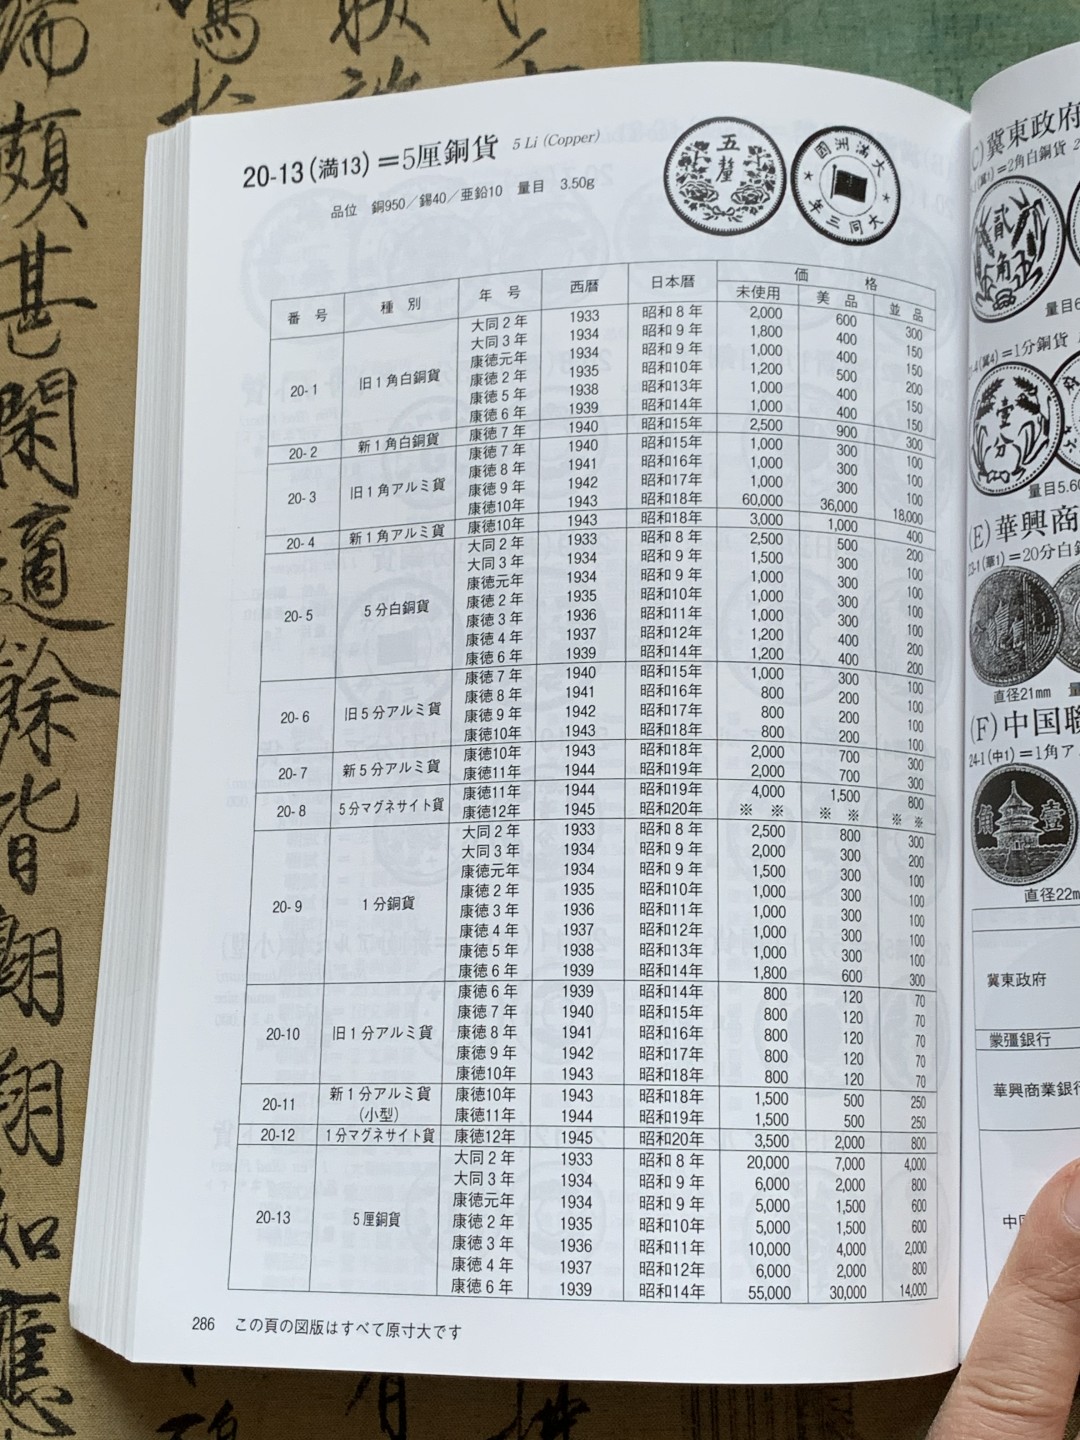 20-13(満13)＝5厘銅貨 5 Li (Copper)
品位 銅950／錫40／亜鉛10 量目 3.50g
五釐
大満洲國
大同三年
番号 種別 年号 西暦 日本暦 価格
未使用 美品 並品
20-1 旧1角白銅貨 大同2年 1933 昭和8年 2,000 600 300
大同3年 1934 昭和9年 1,800 400 150
康徳元年 1934 昭和9年 1,000 400 150
康徳2年 1935 昭和10年 1,200 500 200
康徳5年 1938 昭和13年 1,000 400 150
康徳6年 1939 昭和14年 1,000 400 150
20-2 新1角白銅貨 康徳7年 1940 昭和15年 2,500 900 300
20-3 旧1角アルミ貨 康徳7年 1940 昭和15年 1,000 300 100
康徳8年 1941 昭和16年 1,000 300 100
康徳9年 1942 昭和17年 1,000 300 100
康徳10年 1943 昭和18年 60,000 36,000 18,000
20-4 新1角アルミ貨 康徳10年 1943 昭和18年 3,000 1,000 400
20-5 5分白銅貨 大同2年 1933 昭和8年 2,500 500 200
大同3年 1934 昭和9年 1,500 300 100
康徳元年 1934 昭和9年 1,000 300 100
康徳2年 1935 昭和10年 1,000 300 100
康徳3年 1936 昭和11年 1,000 300 100
康徳4年 1937 昭和12年 1,200 400 200
康徳6年 1939 昭和14年 1,200 400 200
20-6 旧5分アルミ貨 康徳7年 1940 昭和15年 1,000 300 100
康徳8年 1941 昭和16年 800 200 100
康徳9年 1942 昭和17年 800 200 100
康徳10年 1943 昭和18年 800 200 100
20-7 新5分アルミ貨 康徳10年 1943 昭和18年 2,000 700 300
康徳11年 1944 昭和19年 2,000 700 300
20-8 5分マグネサイト貨 康徳11年 1944 昭和19年 4,000 1,500 800
康徳12年 1945 昭和20年 ※ ※ ※ ※ ※ ※
20-9 1分銅貨 大同2年 1933 昭和8年 2,500 800 300
大同3年 1934 昭和9年 2,000 300 200
康徳元年 1934 昭和9年 1,500 300 100
康徳2年 1935 昭和10年 1,000 300 100
康徳3年 1936 昭和11年 1,000 300 100
康徳4年 1937 昭和12年 1,000 300 100
康徳5年 1938 昭和13年 1,000 300 100
康徳6年 1939 昭和14年 1,800 600 300
20-10 旧1分アルミ貨 康徳6年 1939 昭和14年 800 120 70
康徳7年 1940 昭和15年 800 120 70
康徳8年 1941 昭和16年 800 120 70
康徳9年 1942 昭和17年 800 120 70
康徳10年 1943 昭和18年 800 120 70
20-11 新1分アルミ貨(小型) 康徳10年 1943 昭和18年 1,500 500 250
康徳11年 1944 昭和19年 1,500 500 250
20-12 1分マグネサイト貨 康徳12年 1945 昭和20年 3,500 2,000 800
20-13 5厘銅貨 大同2年 1933 昭和8年 20,000 7,000 4,000
大同3年 1934 昭和9年 6,000 2,000 800
康徳元年 1934 昭和9年 5,000 1,500 600
康徳2年 1935 昭和10年 5,000 1,500 600
康徳3年 1936 昭和11年 10,000 4,000 2,000
康徳4年 1937 昭和12年 6,000 2,000 800
康徳6年 1939 昭和14年 55,000 30,000 14,000
286 この頁の図版はすべて原寸大です
C)冀東政府
＝2角白銅貨
貳角
量目6
＝1分銅貨
壹分
量目5.60
(E)華興商
23-1(華1)＝20分白銅
直径21mm 量
(F)中国聯
24-1(中1)＝1角ア
壹角
直径22m
冀東政府
蒙疆銀行
華興商業銀行